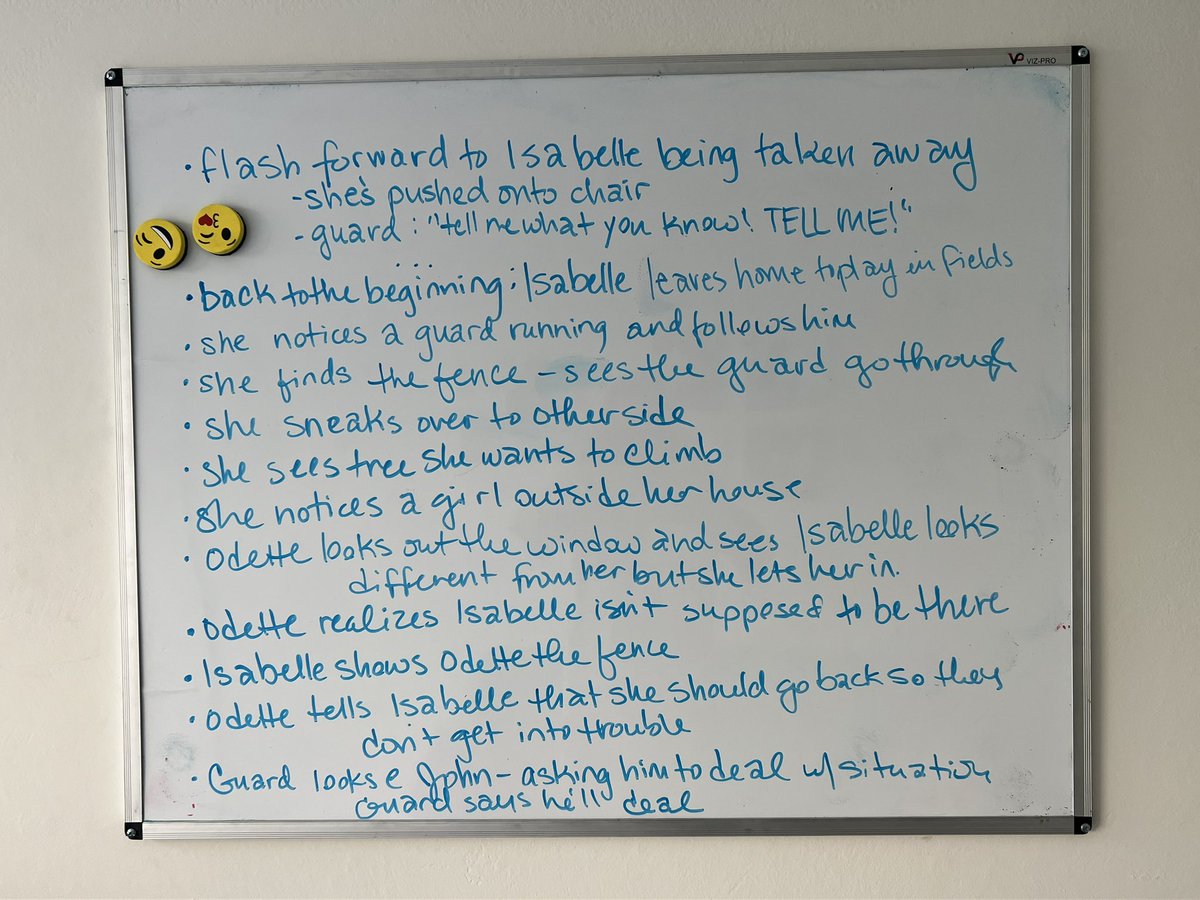 VP VIZ-PRO
• flash forward to Isabelle being taken away
- she's pushed onto chair
- guard: "tell me what you know! TELL ME!"
...
• back to the beginning: Isabelle leaves home to play in fields
• she notices a guard running and follows him
• she finds the fence - sees the guard go through
• she sneaks over to other side
• she sees tree she wants to climb
• she notices a girl outside her house
• Odette looks out the window and sees Isabelle looks
different from her but she lets her in.
• Odette realizes Isabelle isn't supposed to be there
• Isabelle shows Odette the fence
• Odette tells Isabelle that she should go back so they
don't get into trouble
• Guard looks @ John - asking him to deal w/ situation
Guard says he'll deal